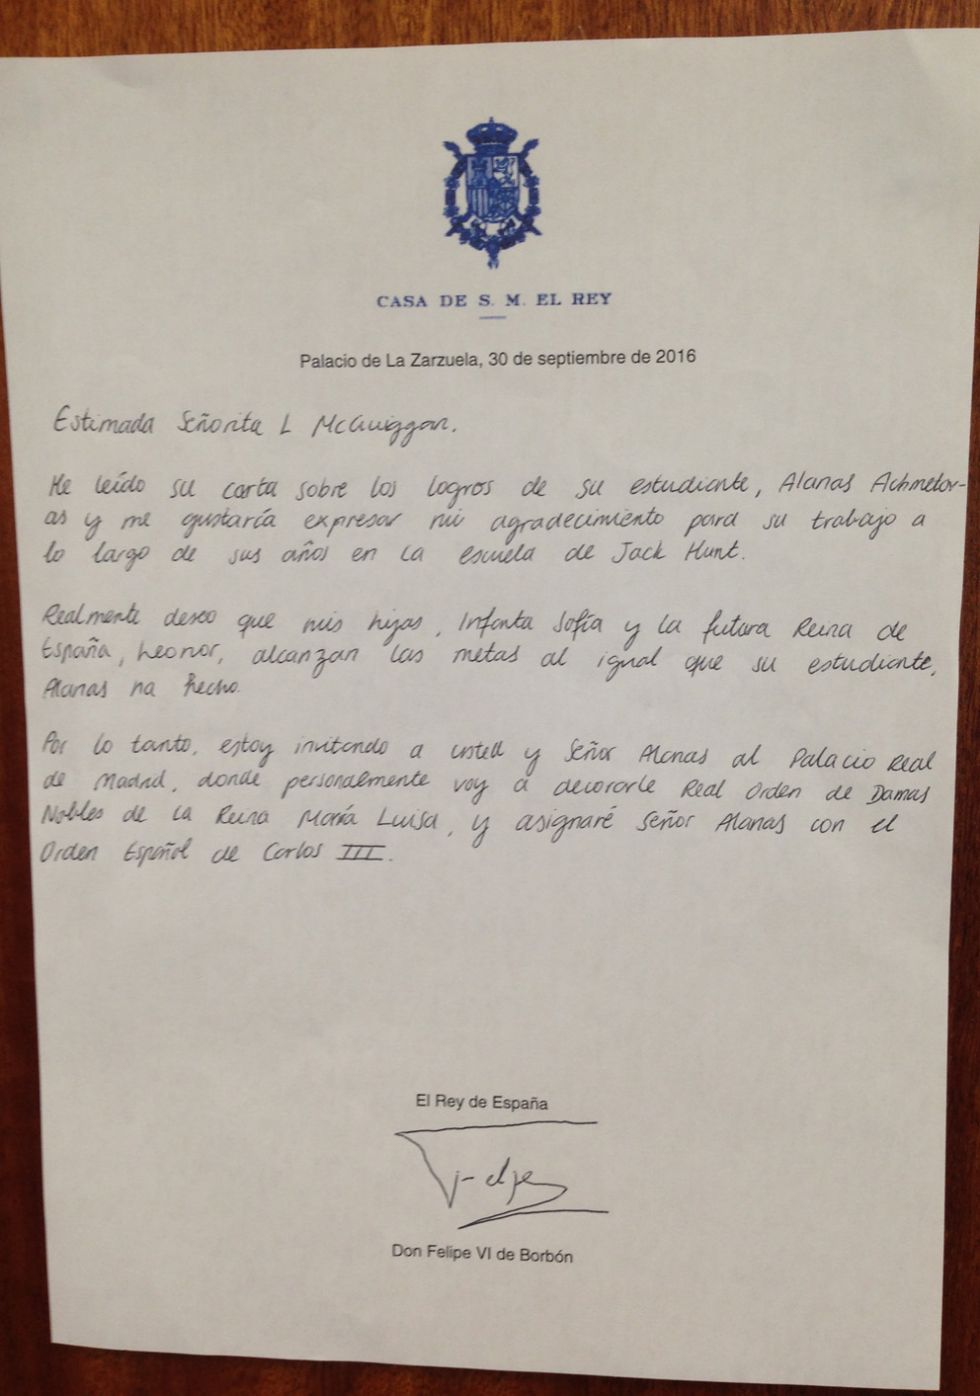 CASA DE S. M. EL REY
Palacio de La Zarzuela, 30 de septiembre de 2016
Estimada Señorita L McGuiggan.
He leído su carta sobre los logros de su estudiante, Alanas Achmetov-
as y me gustaría expresar mi agradecimiento para su trabajo a
lo largo de sus años en la escuela de Jack Hunt.
Realmente deseo que mis hijas, Infanta Sofía y la futura Reina de
España, Leonor, alcanzan las metas al igual que su estudiante,
Alanas ha hecho.
Por lo tanto, estoy invitando a usted y Señor Alanas al Palacio Real
de Madrid, donde personalmente voy a decorarle Real Orden de Damas
Nobles de la Reina María Luisa, y asignaré Señor Alanas con el
Orden Español de Carlos III.
El Rey de España
Felipe
Don Felipe VI de Borbón